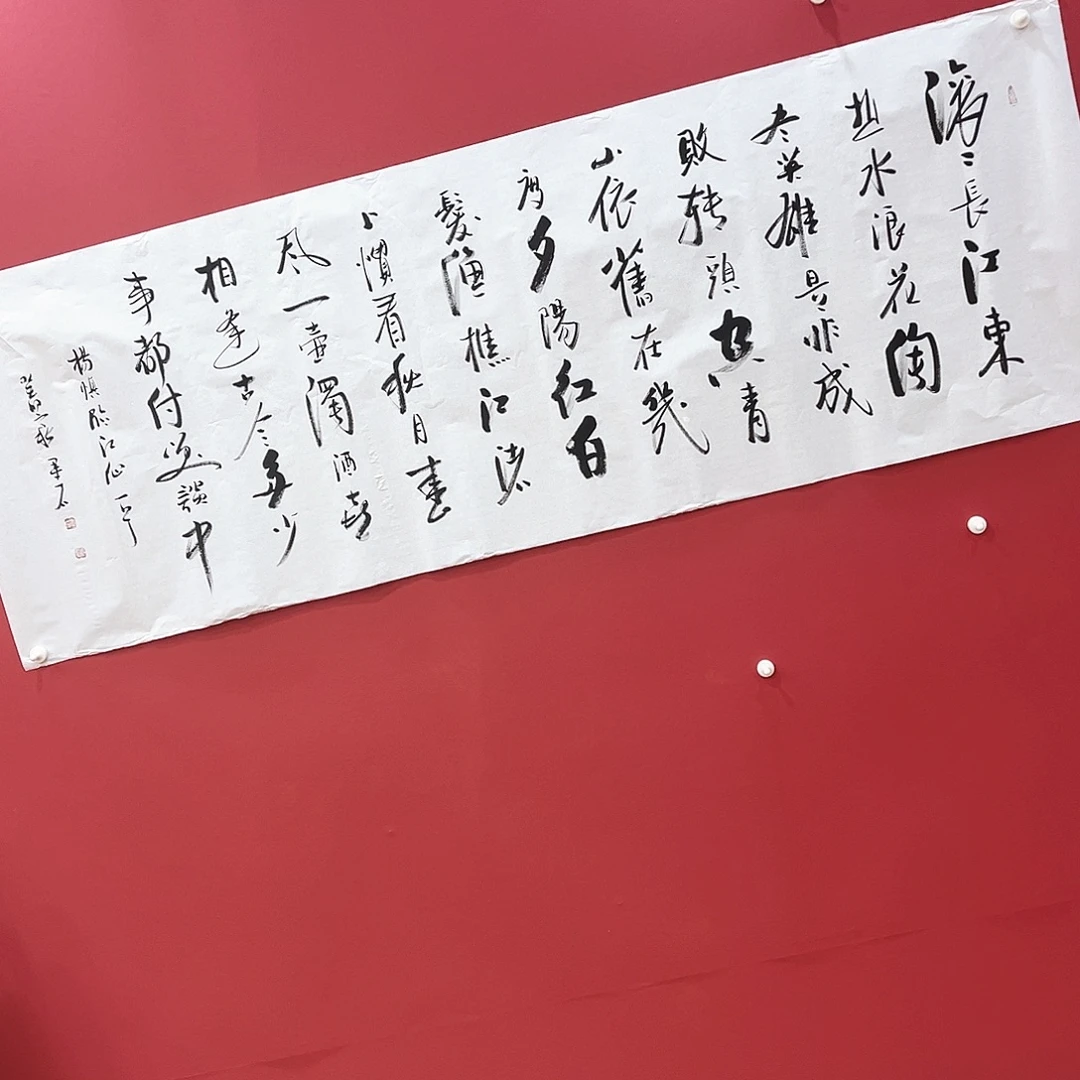 滚〻長江東
逝水浪花淘
尽英雄是非成
敗转頭空青
山依舊在幾
度夕陽红白
髮漁樵江渚
上慣看秋月春
風一壺濁酒喜
相逢古今多少
事都付笑談中
楊慎臨江仙一首